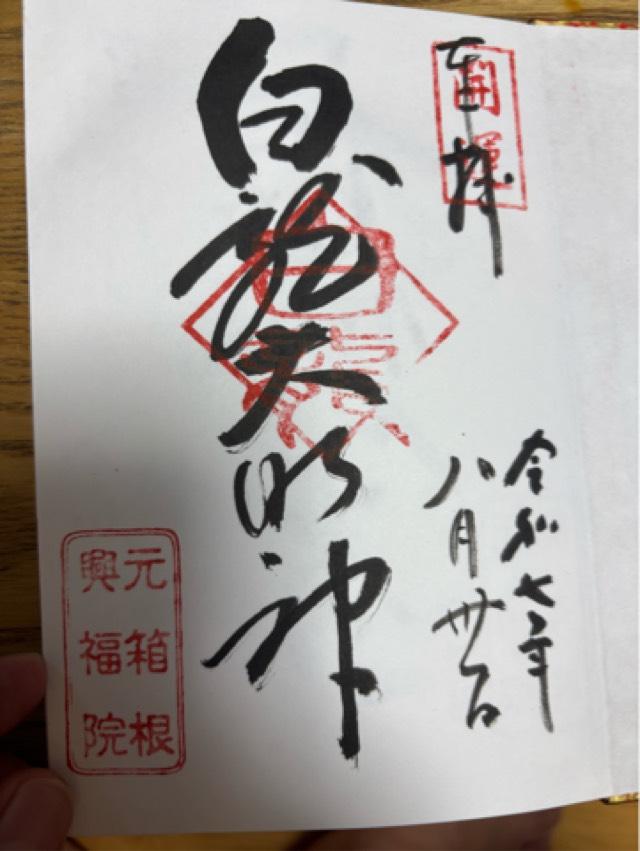 奉拝
開運
令和七年
八月卅一日
白龍大明神
白龍
元箱根
興福院